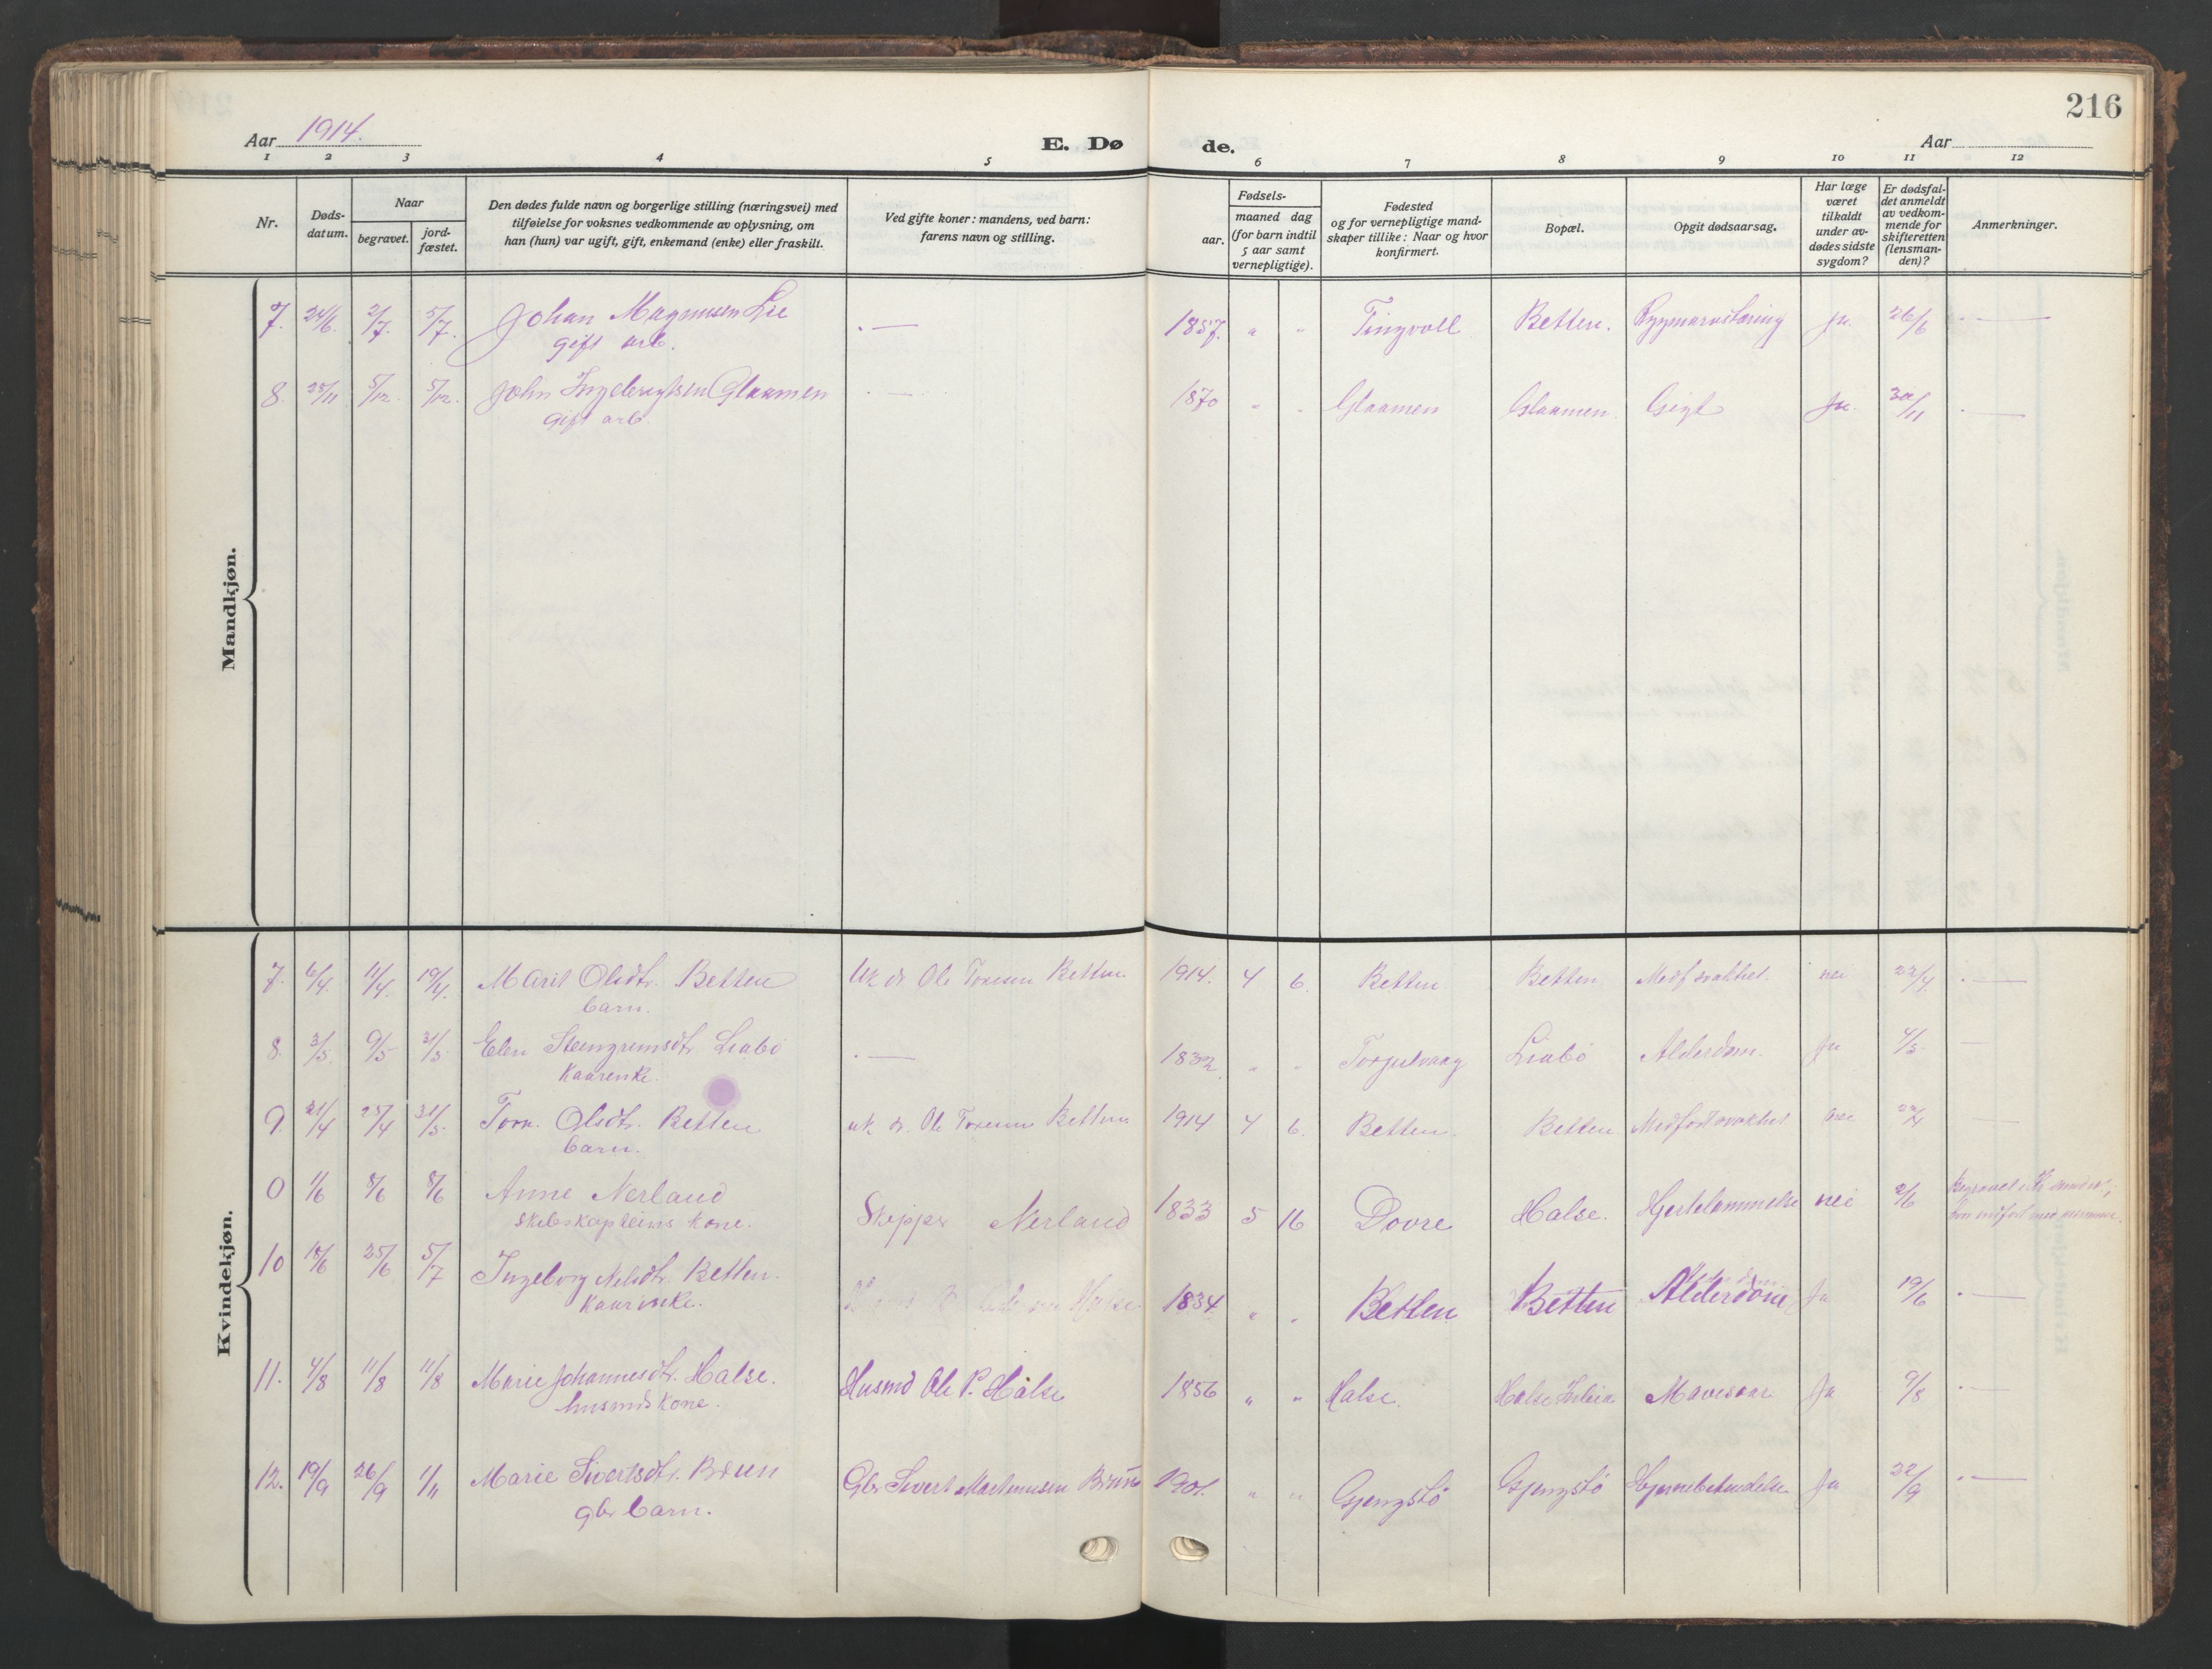 216
Aar 1914.
E. Dø
de.
Aar
1 2 3 4 5 6 7 8 9 10 11 12
Nr.
Døds-
datum.
Naar
begravet.
jord-
fæstet.
Den dødes fulde navn og borgerlige stilling (næringsvei) med
tilføielse for voksnes vedkommende av oplysning, om
han (hun) var ugift, gift, enkemand (enke) eller fraskilt.
Ved gifte koner: mandens, ved barn:
farens navn og stilling.
Fødsels-
aar.
maaned dag
(for barn indtil
5 aar samt
vernepligtige).
Fødested
og for vernepligtige mand-
skaper tillike: Naar og hvor
konfirmert.
Bopæl.
Opgit dødsaarsag.
Har læge
været
tilkaldt
under av-
dødes sidste
sygdom?
Er dødsfal-
det anmeldt
av vedkom-
mende for
skifteretten
(lensman-
den)?
Anmerkninger.
Mandkjøn.
7. 24/6. 2/7. 5/7. Johan Magnusen Lie 1857. " " Tingvoll Betten. Rygmarvstæring Ja. 26/6 —
gift arb.
8. 25/11 5/12. 5/12. John Ingebrigtsen Glaamen — 1870 " " Glaamen Glaamen. Gigt Ja. 30/11 —
gift arb.
Kvindekjøn.
7. 6/4. 11/4. 19/4. Marit Olsdtr. Betten Uk dr Ole Toresen Betten 1914. 4 6. Betten Betten Medf svakhet. nei 22/4 —
barn.
8. 3/5. 9/5 31/5. Elen Steingrimsdtr Liabö — 1832. " " Torjulvaag Liabö Alderdom. Ja 4/5 —
Kaarenke.
9. 21/4 25/4 31/5. Tora. Olsdtr. Betten uk dr. Ole Toresen Betten. 1914 4 6. Betten. Betten. Medfödt svakhet nei 22/4 —
barn.
0 1/6 8/6 8/6 Anne Nerland Skipper Nerland 1833 5 16 Dovre Halse. Hjertelammelse nei 2/6
Skibskapteins kone.
10 18/6 25/6 5/7 Ingeborg Nilsdtr. Betten. 1834 " " Betten Betten Alderdom Ja 19/6 —
Kaarenke.
11. 4/8 11/8 11/8 Marie Johannesdtr. Halse. Husmd Ole P. Halse 1856 " " Halse. Mavesaar Ja 9/8 —
husmdskone.
12. 19/9 26/9 1/11 Marie Sivertsdtr. Bruun Gbr Sivert Martinusen Bruun 1901. " " Gjengstö Gjengstö Hjernebetændelse Ja 22/9 —
gbr barn.